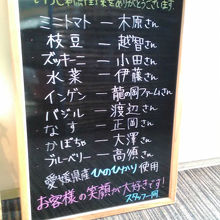 ありがとうございます
ミニトマト ー 木原さん
枝豆 ー 越智さん
ズッキーニ ー 小田さん
水菜 ー 伊藤さん
インゲン ー 龍の岡ファームさん
バジル ー 渡辺さん
なす ー 正岡さん
かぼちゃ ー 大澤さん
ブルーベリー ー 高須賀さん
愛媛県産 ひのひかり 使用
お客様の笑顔が大好きです!
スタッフ一同